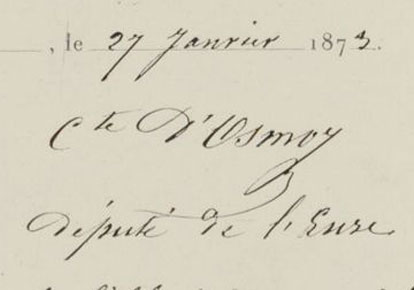 , le 27 Janvier 1873.
Cte D'Osmoy
député de l'Eure